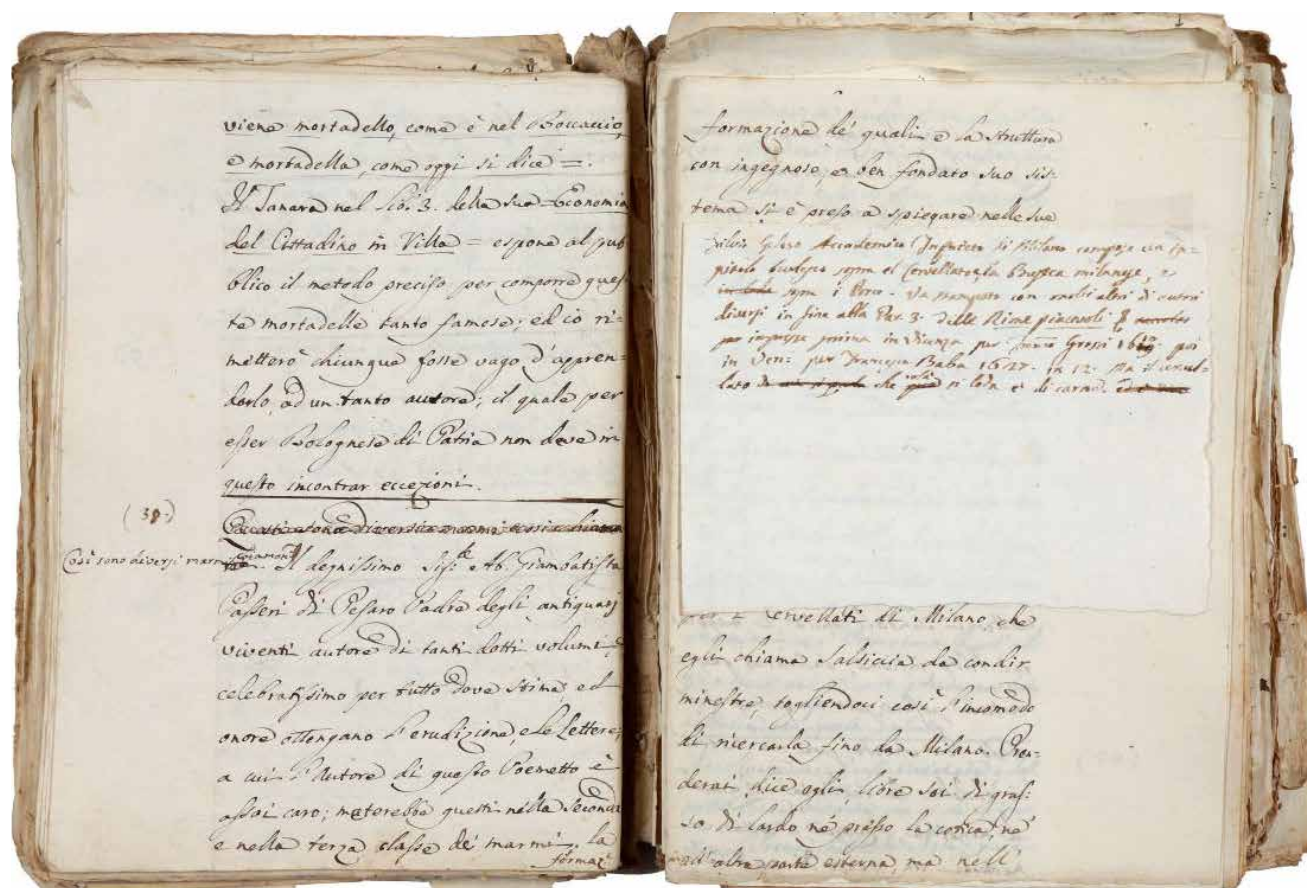 viene mortadello, come è nel Boccaccio,
e mortadella, come oggi si dice =.
Il Tanara nel Lib. 3. della sua = Economia
del Cittadino in Villa = espone al pub
blico il metodo preciso per comporre ques
te mortadelle tanto famose; ed io ri-
metterò chiunque fosse vago d'appren-
derlo, ad un tanto autore; il quale per
esser Bolognese di Patria non deve in
questo incontrar eccezioni.
(39.)
sono diversi marmi
Così sono diversi marmi
Il degnissimo Sig.r Ab. Giambatista
Passeri di Pesaro Padre degli antiquarj
viventi autore di tanti dotti volumi
celebratissimo per tutto dove stima, ed
onore ottengano l'erudizione, e le Lettere,
a cui l'Autore di questo Poemetto è
assai caro; metterebbe questi nella seconda
e nella terza classe de' marmi. la
formaz.
formazione de' quali e la struttura
con ingegnoso, e ben fondato suo sis-
tema si è preso a spiegare nelle sue
Accademico Inquieto di Milano compose un
burlesco sopra el Cervellato, la Busecca milanese, e
sopra i Porco. Va stampato con molti altri di autori
diversi in fine alla Par. 3. delle Rime piacevoli
impresse prima in Vicenza per Grossi poi
in Ven: per Francesco Baba 1627. in 12. Ma il
che si fa è di carne.
Cervellati di Milano, che
egli chiama Salsiccia da condir
minestre, togliendoci così l'incomodo
di ricercarla fino da Milano. Pren-
derai, dice egli, libre sei di gras-
so di lardo né presso la cotica, né
all'altra parte esterna, ma nell'